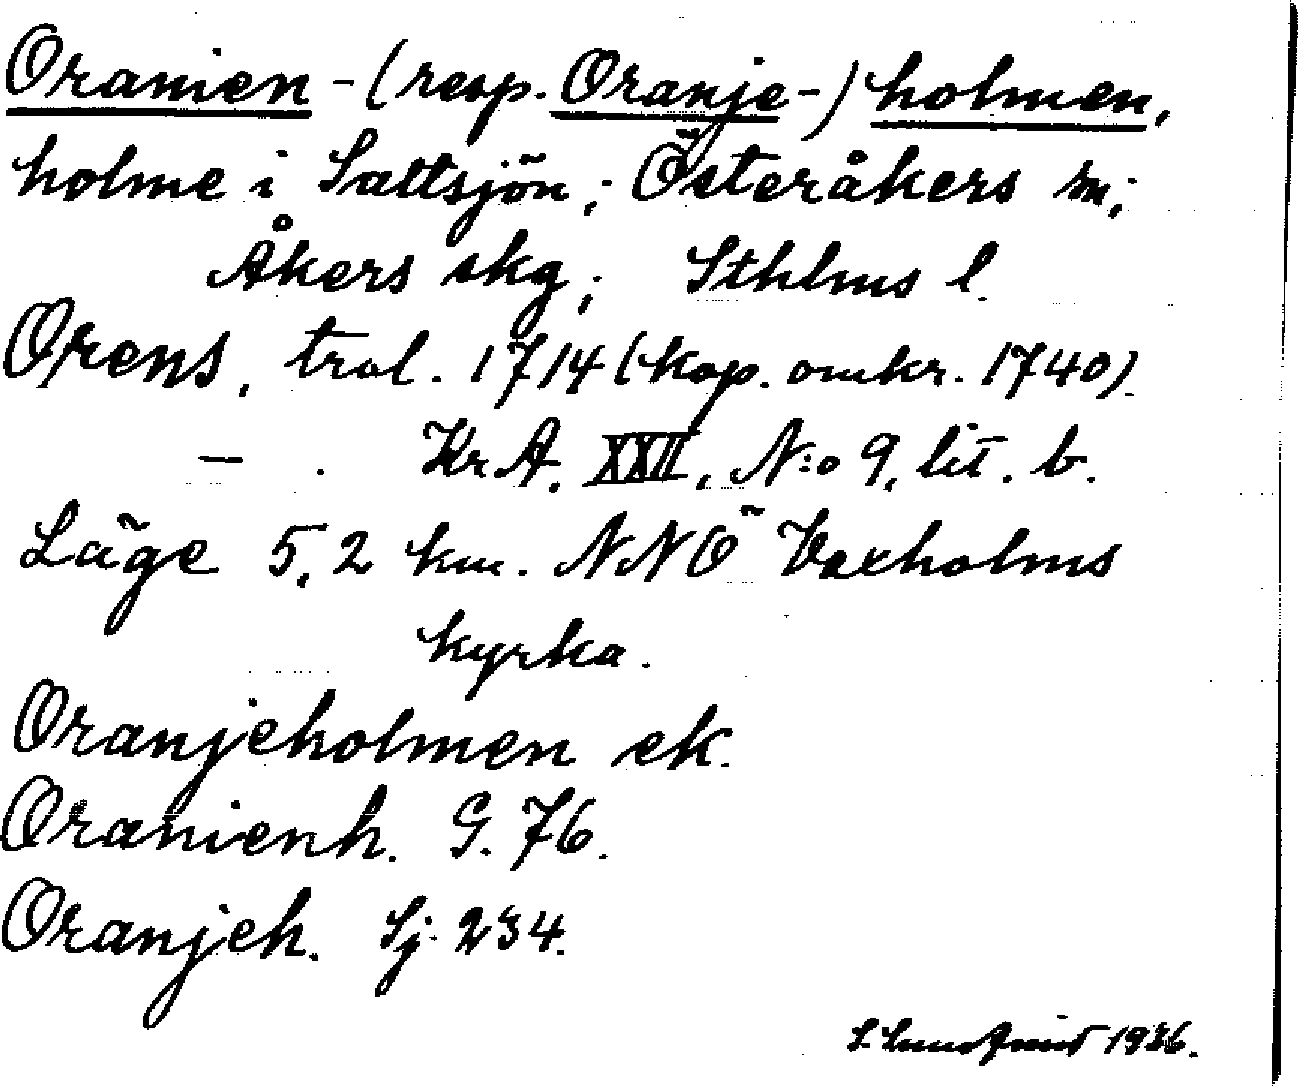 Oranien - (resp. Oranje-) holmen,
holme i Saltsjön; Österåkers sn;
Åkers skg; Sthlms l.
Orens, tral. 1714 (kop. omkr. 1740).
— . Kr A. XXII, N:o 9, lit. b.
Läge 5,2 km. NNÖ Vaxholms
kyrka.
Oranjeholmen ek.
Oranienh. G. 76.
Oranjeh. Sj. 234.
S. 1936.